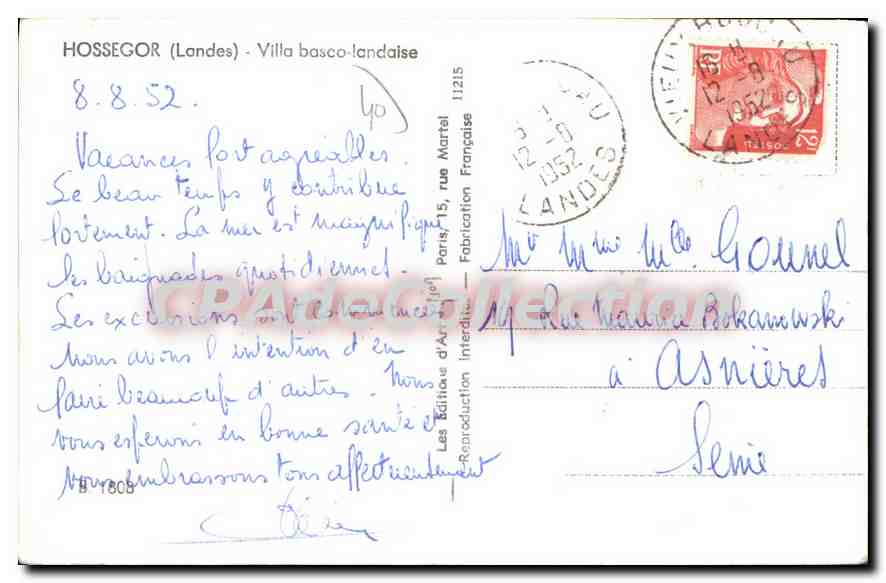 HOSSEGOR (Landes) - Villa basco-landaise
8.8.52.
40
Vacances fort agréables.
Le beau temps y contribue
fortement. La mer est magnifique
les baignades quotidiennes.
Les excursions sont commencées
Nous avons l'intention d'en
faire beaucoup d'autres. Nous
vous espérons en bonne santé et
vous embrassons tous affectueusement
B. 1808
Les Editions d'Art Paris, 15, rue Martel 11215
Reproduction Interdite — Fabrication Française
12 -8
1952
LANDES
VIEUX
12 -8
1952
LANDES
12
Mr Mme Mlle Gounel
Rue Maurice Bokanowski
à Asnières
Seine
CPAdeCollection